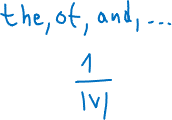 the, of, and, ...
1
|V|